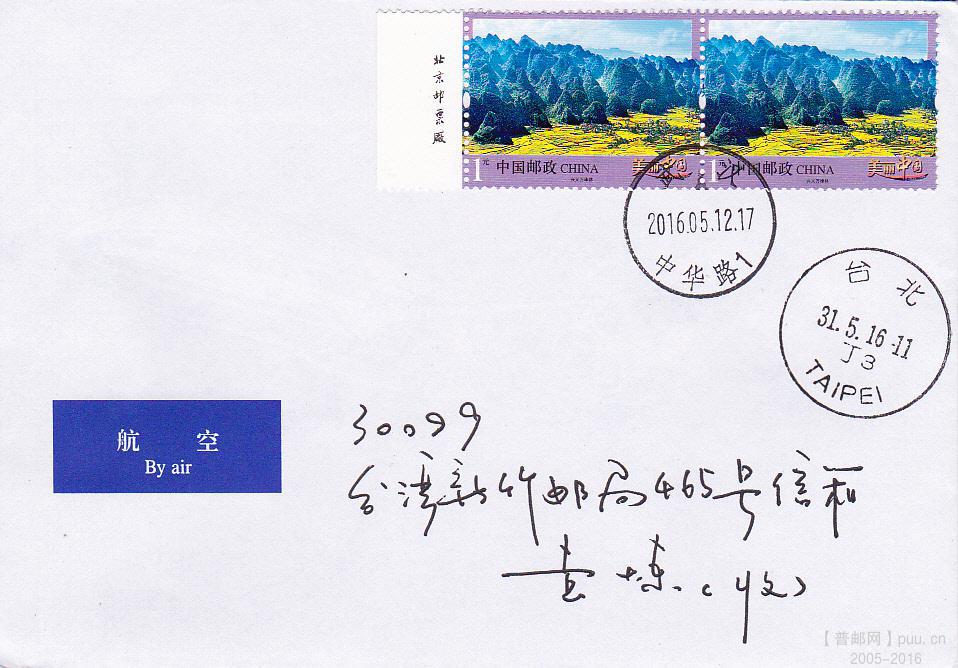 北京邮票厂
1元 中国邮政 CHINA 美丽中国
兴义万峰林
1元 中国邮政 CHINA 美丽中国
兴义万峰林
2016.05.12.17
中华路1
台北
31.5.16-11
J3
TAIPEI
航空
By air
30099
台湾新竹邮局465号信箱
(收)
【普邮网】puu.cn
2005-2016